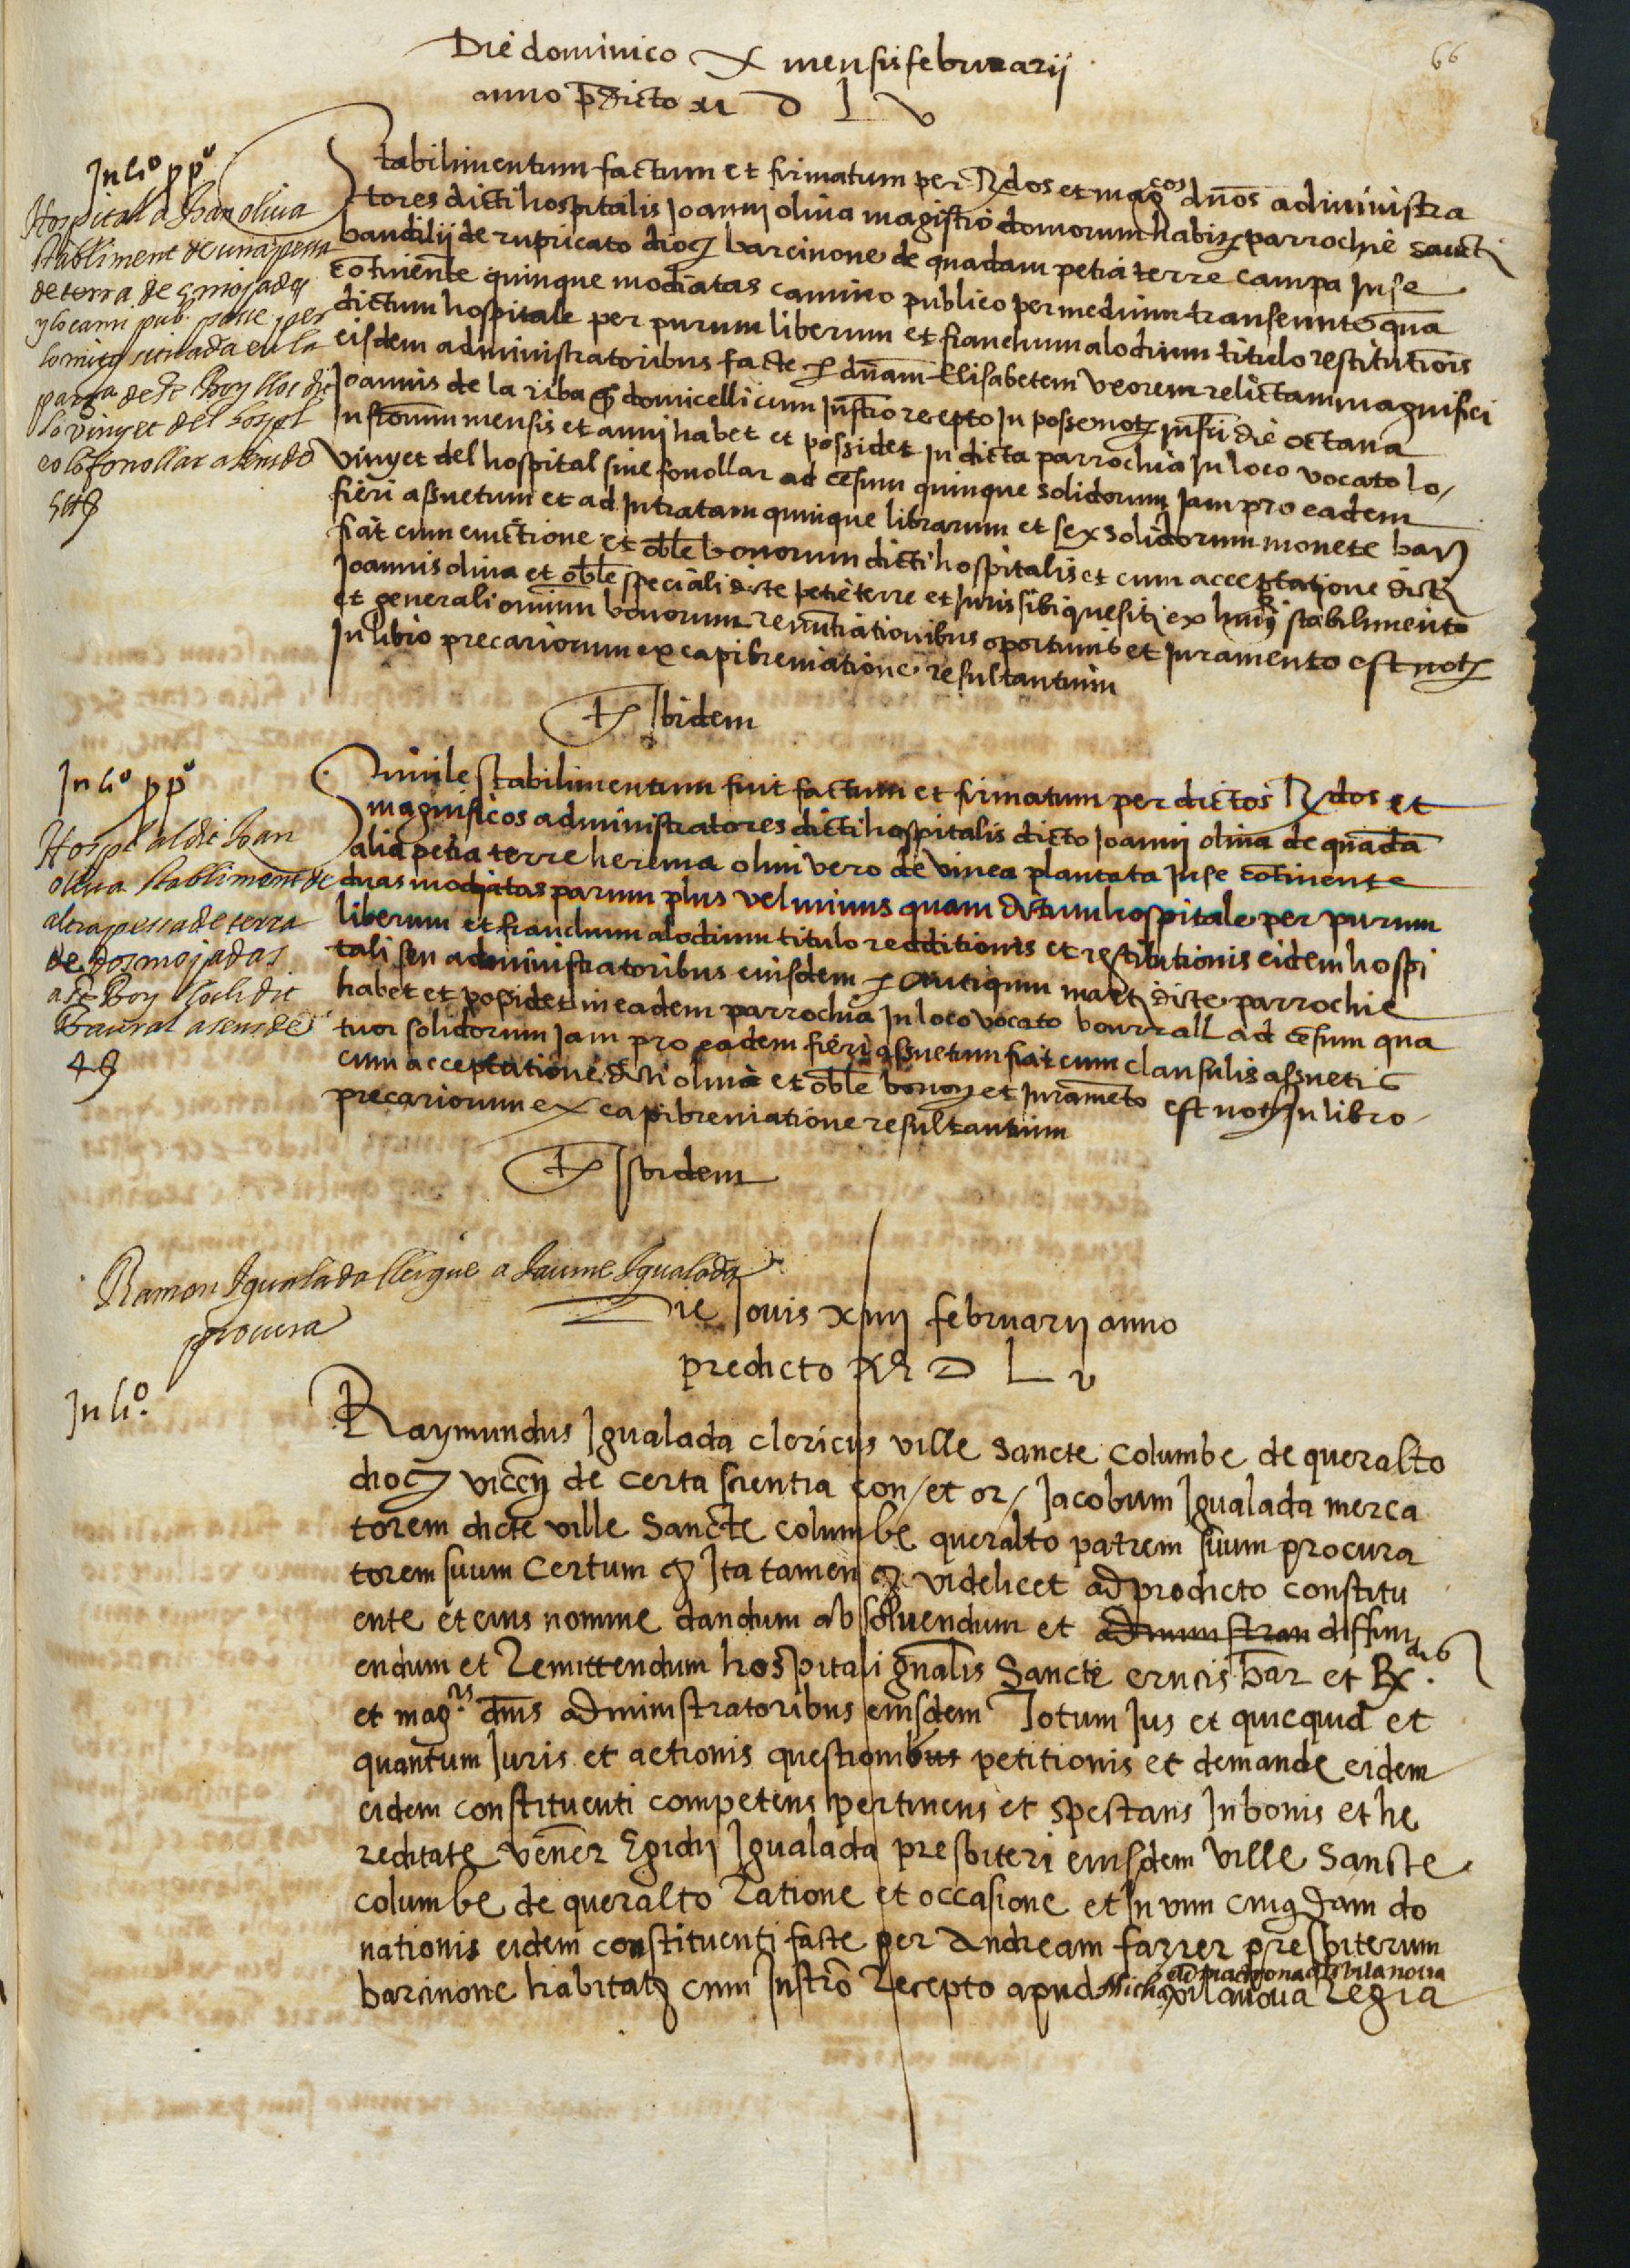 66
Die dominico X mensis februarii
anno p̄dicto M D L V
In liº ppº
Hospital a Joan oliva
stabliment de una pessa
de terra de 5 mojades
y lo cami pub. passe per
lo mitg situada en la
parrª de St Boy lloc dit
lo vinyet del hospl
o lo fonollar a sens de
5 s
Stabilimentum factum et firmatum per Rdos et magcos dn̄os administra
tores dicti hospitalis Joanni oliva magistro domorum habitȝ parrochie sancti
baudilii de rupricato diocȝ barcinone de quadam petia terre campa In se
cōtinente quinque modiatas camino publico per medium transeunte quā
dictum hospitale per purum liberum et franchum alodium titulo restitutiōis
eisdem administratoribus facte per dn̄am Elisabetem uxorem relictam magnifici
Joannis de la riba q̄ domicelli cum Instr̄o recepto In posse notȝ infrī die octava
Instantium mensis et anni habet et possidet In dicta parrochia In loco vocato lo
vinyet del hospital sive fonollar ad cēsum quinque solidorum Jam pro eadem
fieri assuetum et ad Intratam quinque librarum et sex solidorum monete barȝ
fiat cum evictione et obl̄e bonorum dicti hospitalis et cum acceptatione dicti
Joannis oliva et obl̄e speciali dicte petie terre et Juris sibi quesiti ex huiꝰ stabilimento
et generali omnium bonorum renūtiationibus oportunis et Juramento est notȝ
In libro precariorum ex capibreviatione resultantium
Tȝ Ibidem
In liº ppº
Hospl al dit Joan
oliva stabliment de
altra pessa de terra
de dos mojadas
a St Boy lloch dit
Baural a sens de
4 s
Simile stabilimentum fuit factum et firmatum per dictos Rdos et
magnificos administratores dicti hospitalis dicto Joanni oliva de quadā
alia petia terre herema olim vero de vinea plantata In se cōtinente
duas modiatas parum plus vel minus quam dictum hospitale per purum
liberum et franchum alodium titulo redditionis et restitutionis eidem hospi
tali seu administratoribus eiusdem per Antiquum marti dicte parrochie
habet et possidet in eadem parrochia In loco vocato bourrall ad cēsum qua
tuor solidorum Jam pro eadem fieri assuetum fiat cum clausulis assuetis
cum acceptatione dicti oliva et obl̄e bonoȝ et Juramēto est notȝ In libro
precariorum ex capibreviatione resultantium
Tȝ Ibidem
Ramon Igualada clergue a Jaume Igualada
procura
Die Jovis xiiii februarii anno
predicto M D L v
In liº.
Raymundus Igualada clericus ville Sancte Columbe de queralto
diocȝ viceñ de certa scientia con/ et or/ Jacobum Igualada merca
torem dicte ville Sancte columbe queralto patrem suum procura
torem suum Certum ȝ Ita tamen ȝ videlicet ad prodicto constitu
ente et eius nomine dandum absolvendum et administran diffini
endum et Remittendum hospitali gn̄alis Sancte crucis bar et Rdis
et magcis dn̄is administratoribus eiusdem Totum Jus et quicquid et
quantum Juris et actionis questionibus petitionis et demande eidem
eidem constituenti competens pertinens et spectans In bonis et he
reditate vener Egidii Igualada presbiteri eiusdem ville Sancte
columbe de queralto Ratione et occasione et In vim cuiusdam do
nationis eidem constituenti facte per Andream farrer presbiterum
barcinone habitatȝ cum Instr̄o Recepto apud vilanova Regia